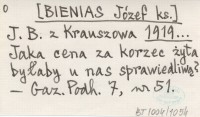 [BIENIAS Józef ks.]
J. B. z Krauszowa 1919...
Jaka cena za korzec żyta
byłaby u nas sprawiedliwą?
— Gaz. Podh. 7, nr 51.
BJ1004/1054